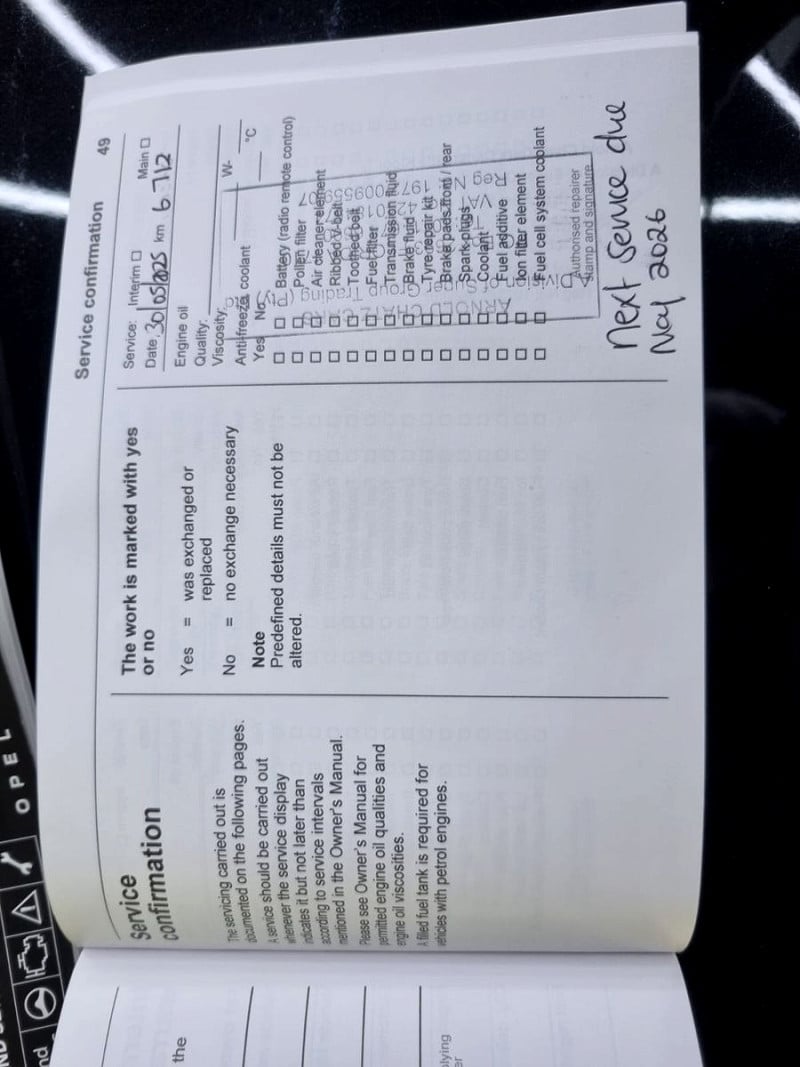 Service confirmation 49
Service
confirmation
The servicing carried out is
documented on the following pages.
A service should be carried out
whenever the service display
indicates it but not later than
according to service intervals
mentioned in the Owner's Manual.
Please see Owner's Manual for
permitted engine oil qualities and
engine oil viscosities.
A filled fuel tank is required for
vehicles with petrol engines.
The work is marked with yes
or no
Yes = was exchanged or
replaced
No = no exchange necessary
Note
Predefined details must not be
altered.
Service: Interim □ Main □
Date 30/05/2025 km 6 712
Engine oil
Quality:
Viscosity: W-
Anti-freeze coolant °C
Yes No
□ □ Battery (radio remote control)
□ □ Pollen filter
□ □ Air cleaner element
□ □ Ribbed V-belt
□ □ Toothed belt
□ □ Fuel filter
□ □ Transmission fluid
□ □ Brake fluid
□ □ Tyre repair kit
□ □ Brake pads front / rear
□ □ Spark plugs
□ □ Coolant
□ □ Fuel additive
□ □ Ion filter element
□ □ Fuel cell system coolant
Authorised repairer
stamp and signature
Division of Super Group Trading (Pty) Ltd
Next Service due
May 2026
OPEL
the